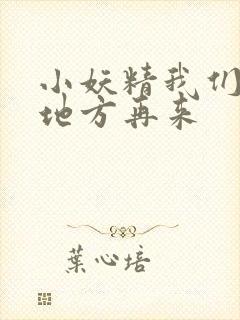 小妖精我们
地方再来
葉心培